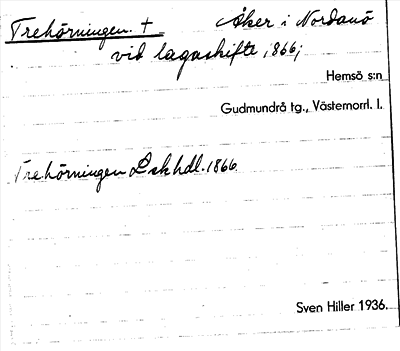 Trehörningen. † Åker i Nordanö
vid lagaskifte, 1866;
Hemsö s:n
Gudmundrå tg., Västernorrl. l.
Trehörningen Lskhdl. 1866
Sven Hiller 1936.